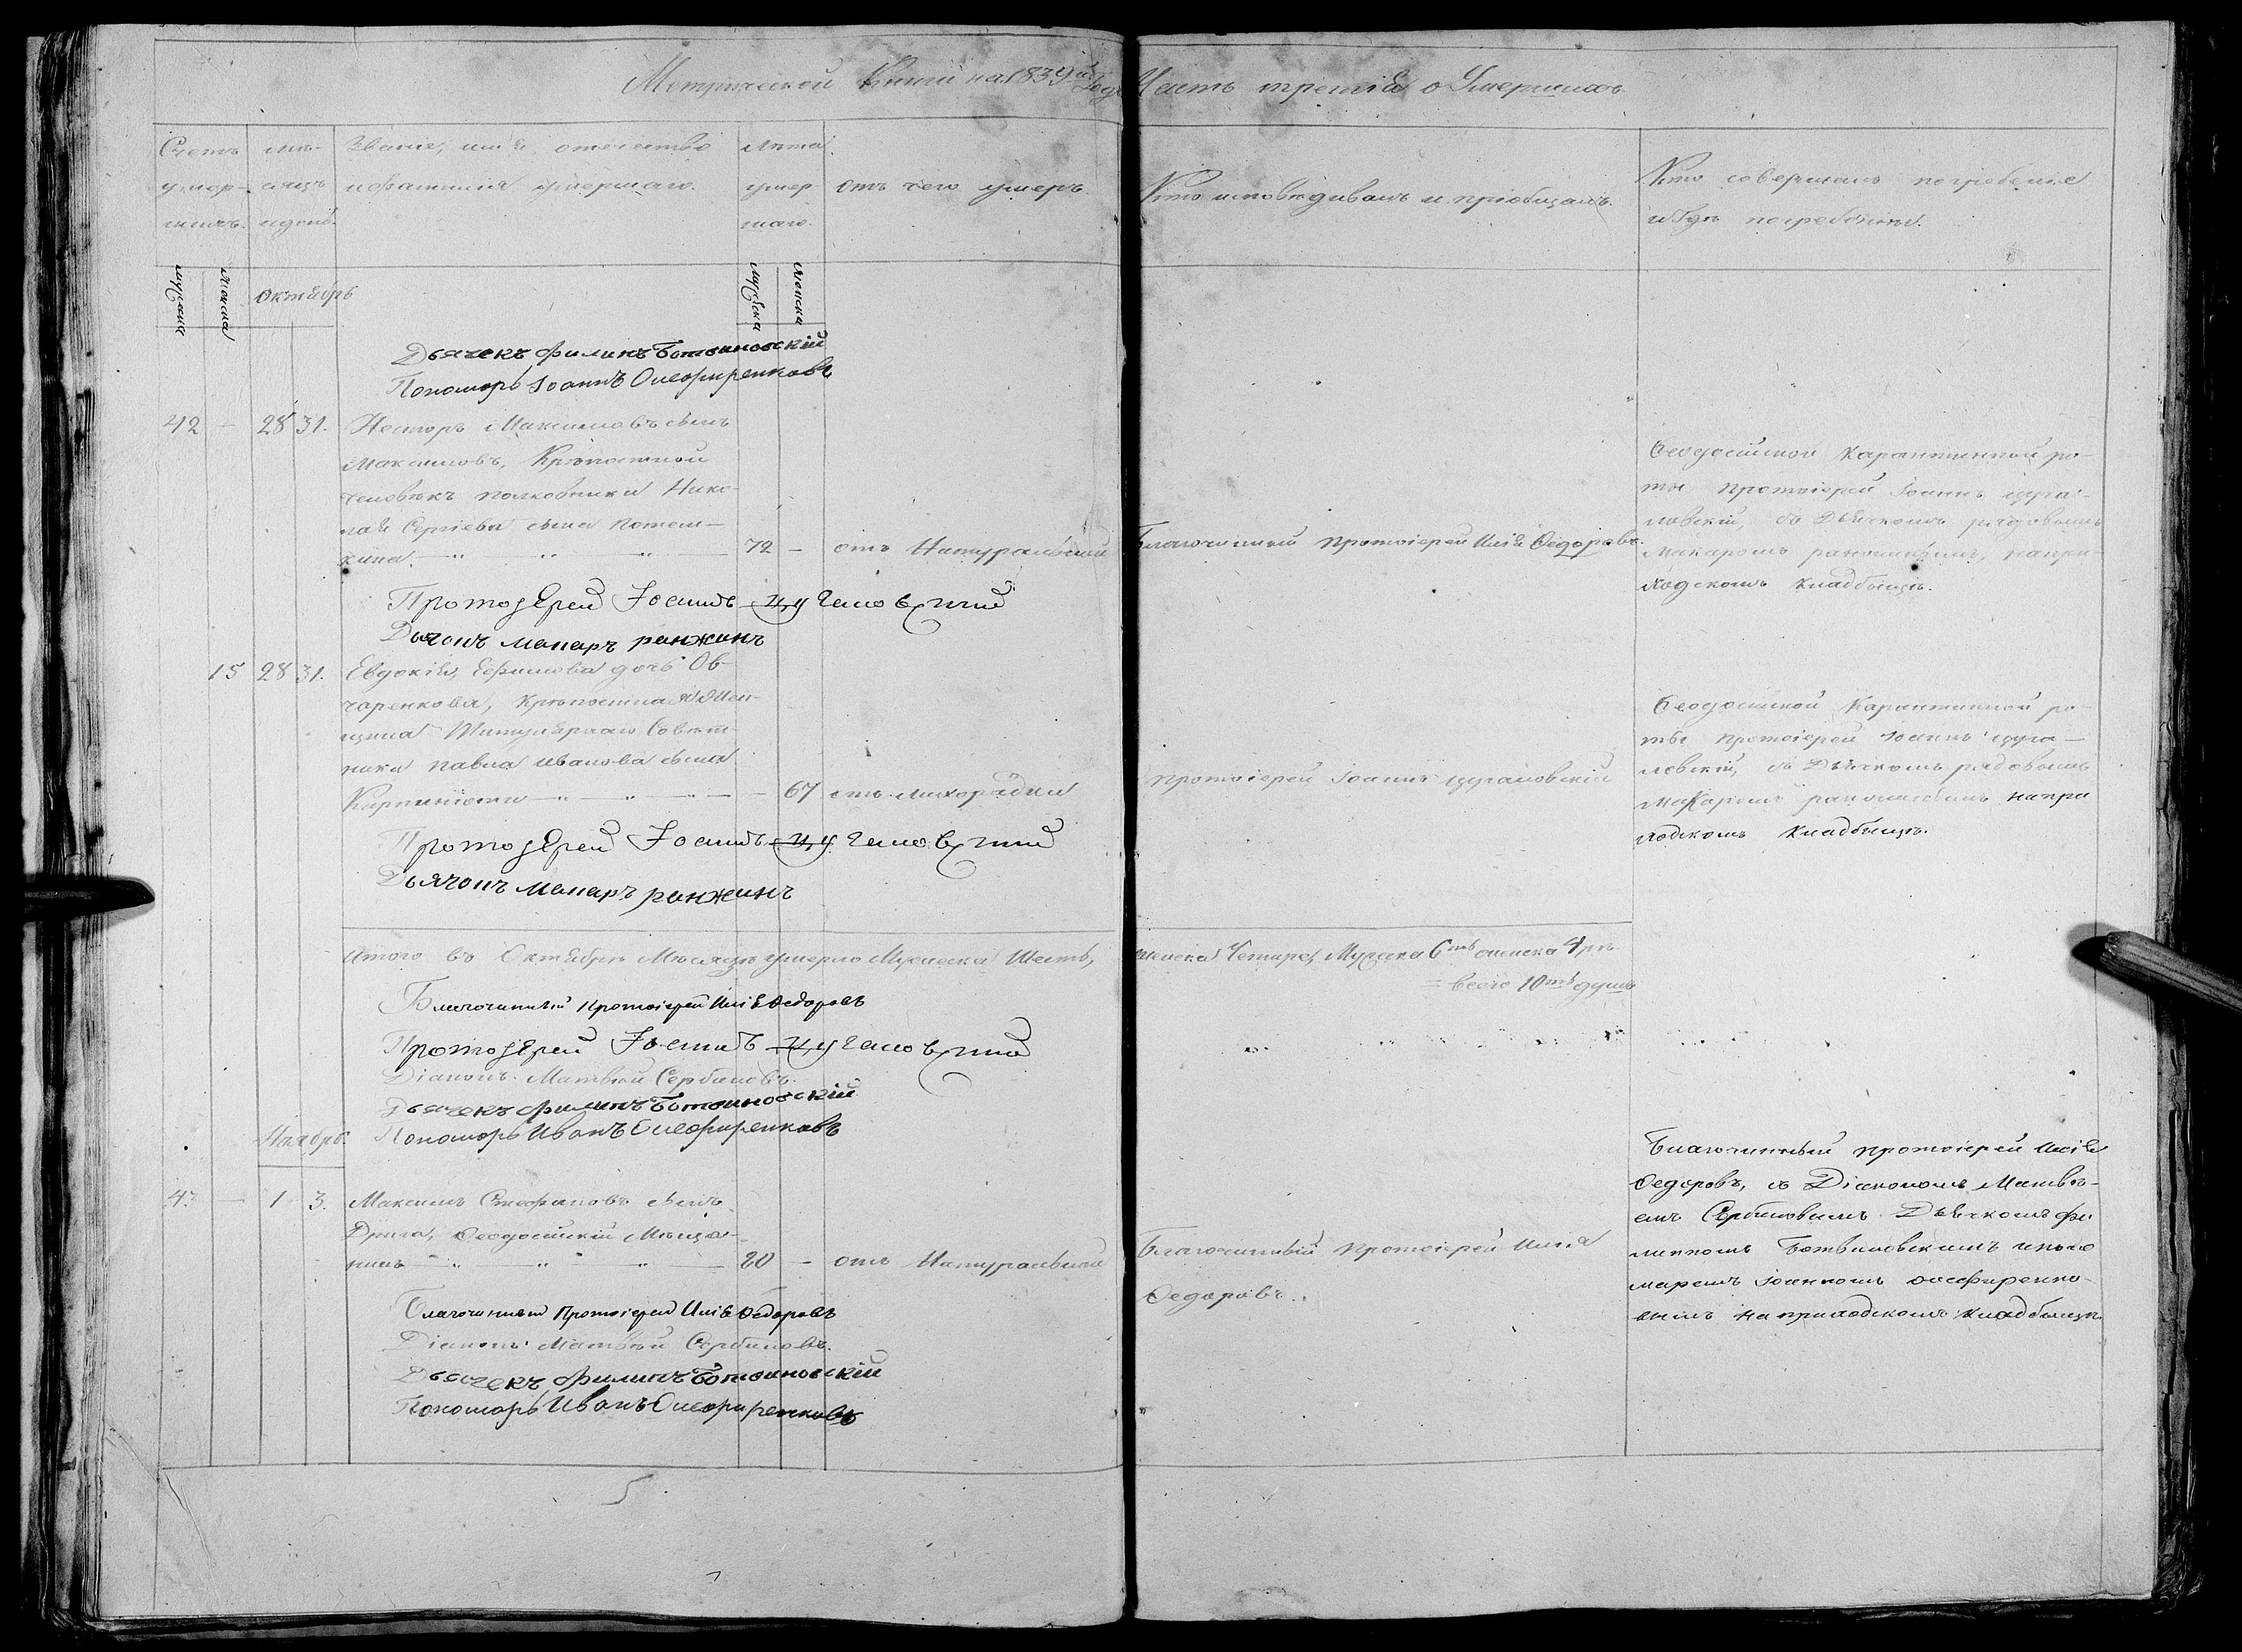 Метрической Книги на 1839й Годъ Часть третія о Умершихъ
Счетъ умершихъ.
мѣсяцъ и день.
Званіе, имя, отечество
и фамилия умершаго.
лѣта умершаго.
отъ чего умеръ.
Кто исповѣдывалъ и пріобщалъ.
Кто совершалъ погребеніе
и Гдѣ погребены.
мужска
женска
Октябрь
мужеска
женска
Дьячекъ Филипъ Ботвиновскій
Пономарь Іоаннъ Олефиренковъ
42 — 28 31. Несторъ Максимовъ сынъ
Максимовъ, Крѣпостной
человѣкъ полковника Нико-
лая Сергіева сына Потем-
кина — " — " — " — 72 — отъ Натуральной
Благочинный протоіерей Илія Ѳедоровъ.
Ѳеодосійской Карантинной ро-
ты протоіерей Іоаннъ цуга-
ловскій, съ Дьячкомъ рядовымъ
Макаромъ, напри-
ходскомъ кладбищѣ.
Протоіерей Іоаннъ
Дьячокъ макаръ ранжинъ
15 28 31. Евдокія, Ефимова дочь Ов-
чаренкова, крѣпостная жен-
щина Титулярнаго Совѣт-
ника павла иванова сына
— " — " — " — 67 отъ лихорадки
протоіерей Іоаннъ цугаловскій
Ѳеодосійской Карантинной ро-
ты протоіерей Іоаннъ цуга-
ловскій, съ Дьячкомъ рядовымъ
Макаромъ напри
ходскомъ кладбищѣ.
Протоіерей Іоаннъ
Дьячокъ макаръ ранжинъ
Итого въ Октябрѣ Мѣсяцѣ умерло Мужеска Шесть,
женска Четыре, Мужска 6ть женска 4ре
= всего 10ть душъ
Благочинный Протоіерей Илія Ѳедоровъ
Протоіерей Іоаннъ
Діаконъ Матвѣй Сербиновъ.
Дьячекъ Филипъ Ботвиновскій
Пономарь Иванъ Олефиренковъ
Ноябрь.
43 — 1 3. Максимъ Стефановъ сынъ
Дрига, Ѳеодосійскій Мѣща-
нинъ — " — " — " — 80 — отъ Натуральной
Благочинный протоіерей Илія
Ѳедоровъ.
Благочинный протоіерей Илія
Ѳедоровъ, съ Діакономъ Матвѣ-
емъ Сербиновымъ Дьячкомъ фи
липпомъ Ботвиновскимъ ипоно
маремъ Іоанномъ олефиренко-
вымъ наприходскомъ кладбищѣ.
Благочинный Протоіерей Илія Ѳедоровъ
Діаконъ Матвѣй Сербиновъ.
Дьячекъ Филипъ Ботвиновскій
Пономарь Иванъ Олефиренковъ